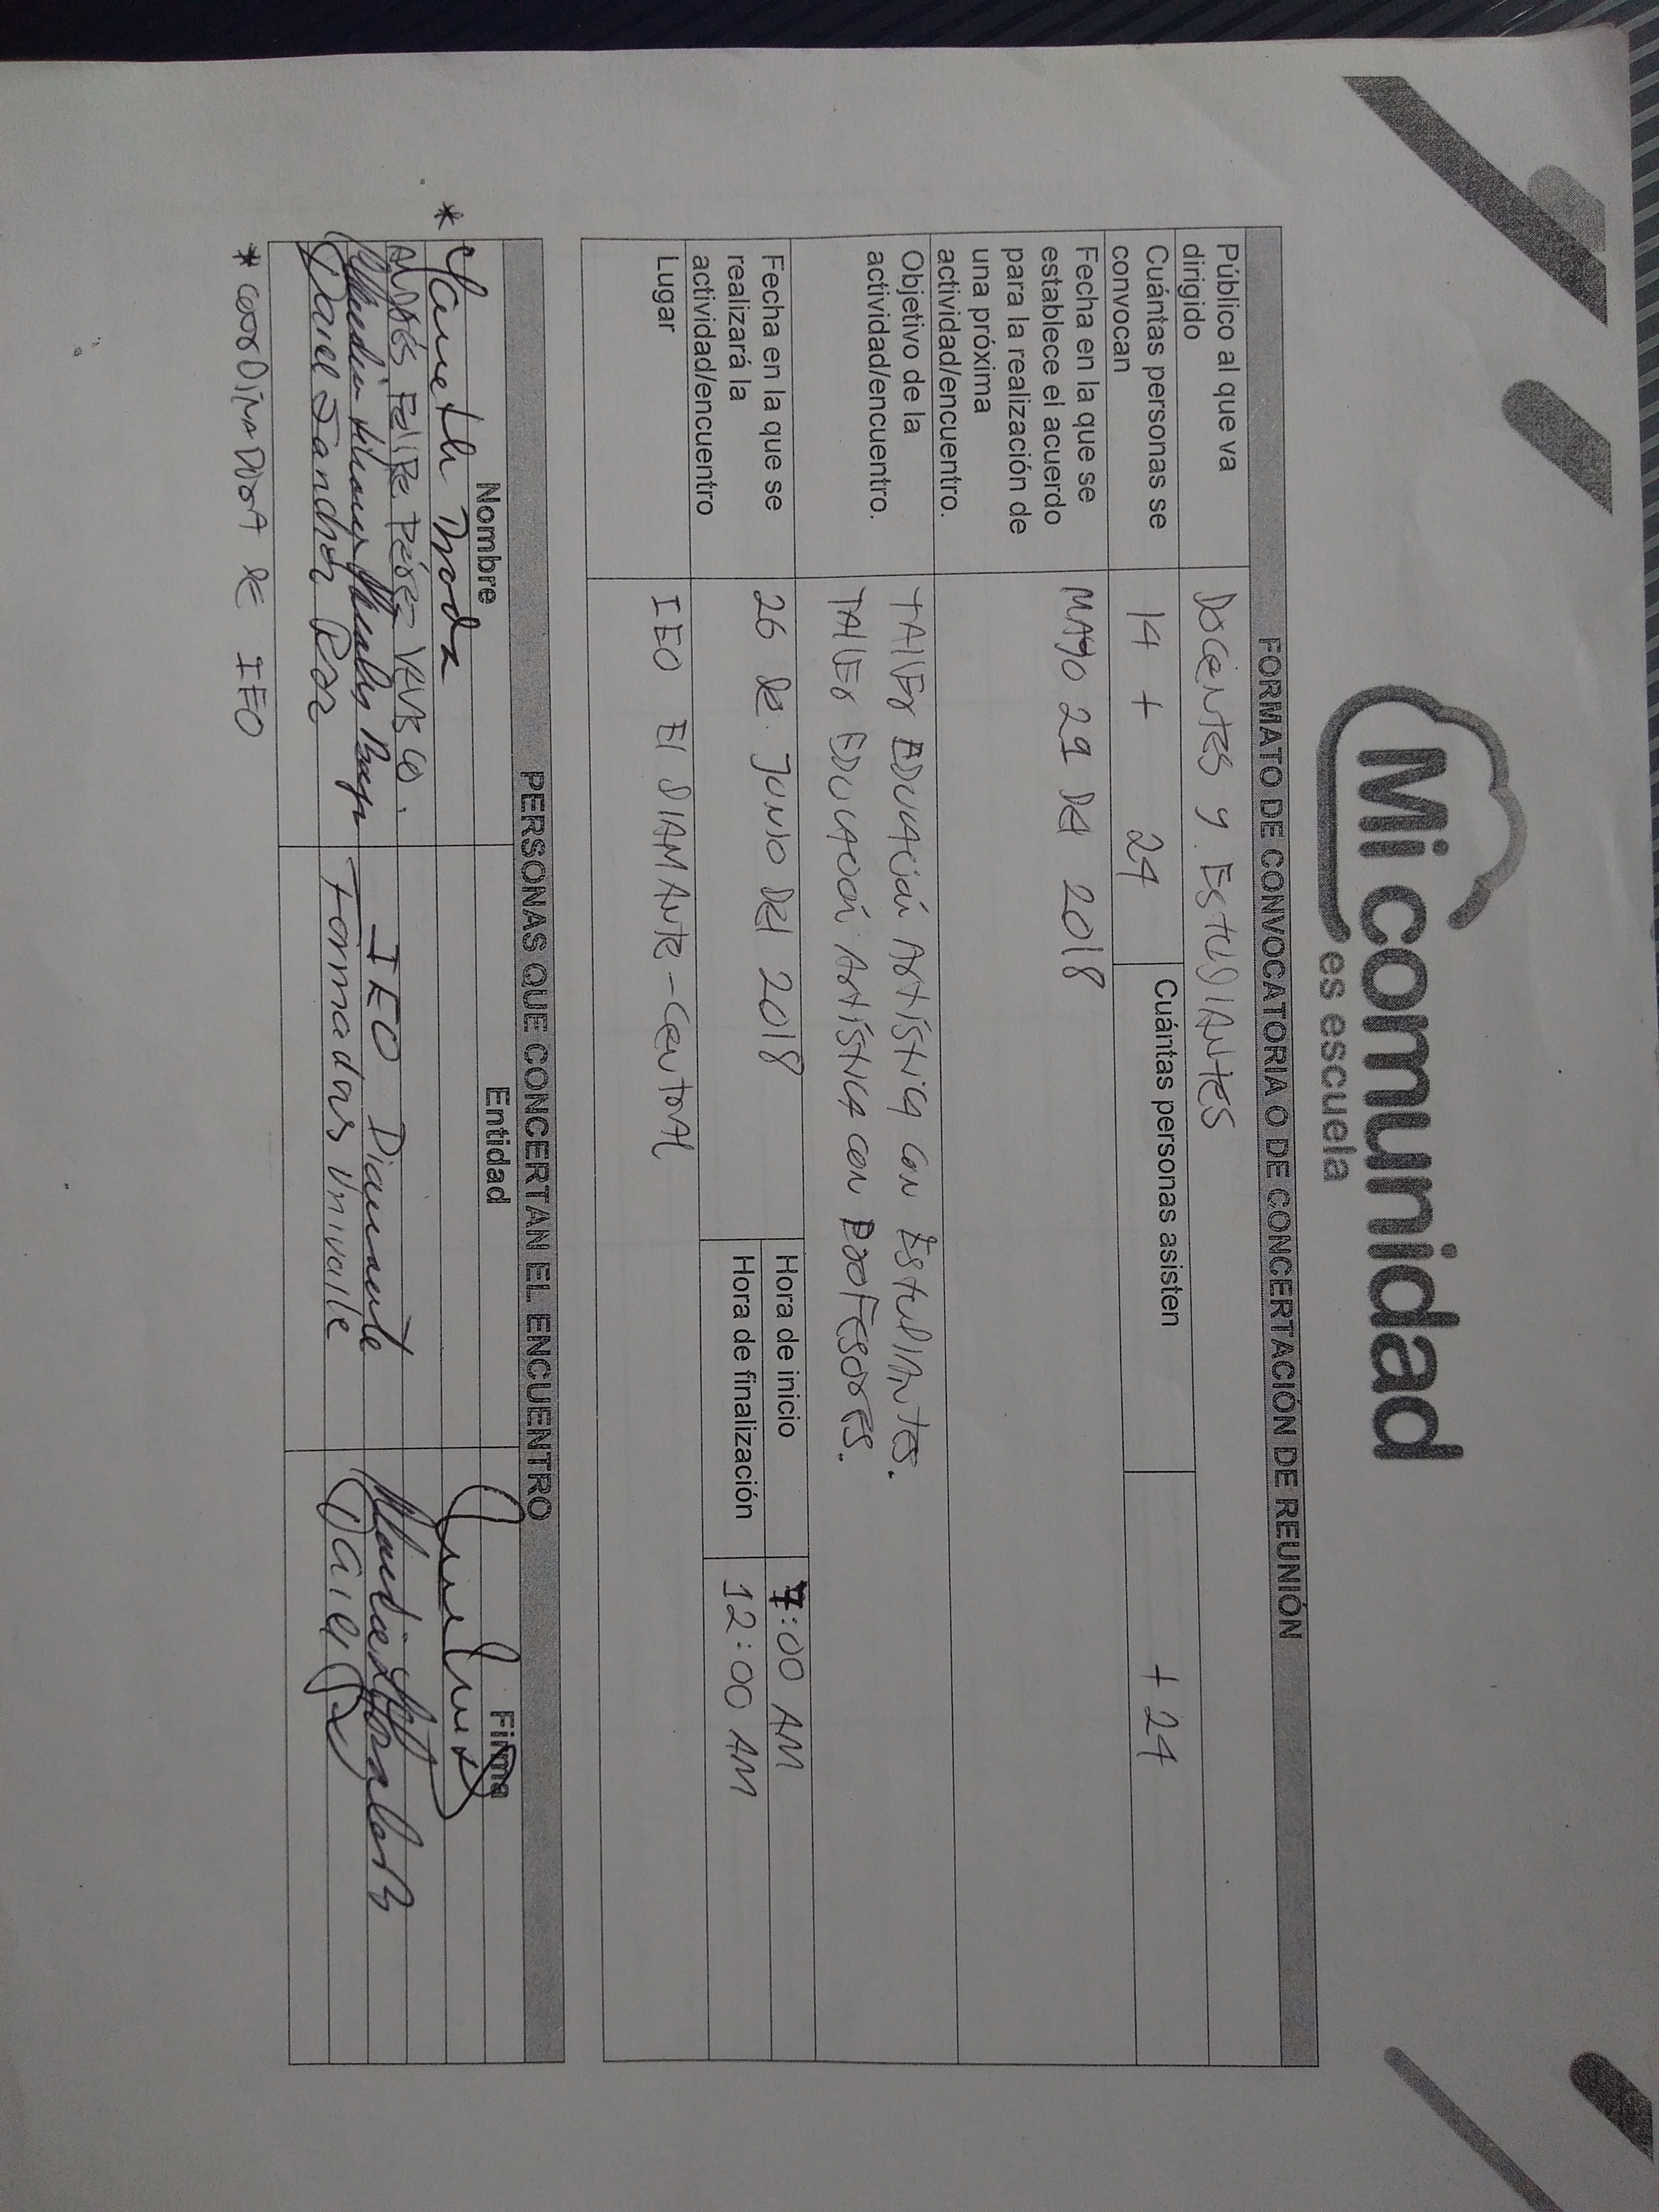 Mi comunidad
es escuela
FORMATO DE CONVOCATORIA O DE CONCERTACIÓN DE REUNIÓN
Público al que va
dirigido
DOCENTES Y ESTUDIANTES
Cuántas personas se
convocan
14 + 24
Cuántas personas asisten
+ 24
Fecha en la que se
establece el acuerdo
para la realización de
una próxima
actividad/encuentro.
MAYO 29 DEl 2018
Objetivo de la
actividad/encuentro.
TAllEr EDUCACión ArtíSticA CON EStUDIANtES.
TAllEr EDUCACión ArtíSticA CON ProFESorES.
Fecha en la que se
realizará la
actividad/encuentro
26 DE JUNIO DEl 2018
Hora de inicio
7:00 AM
Hora de finalización
12:00 AM
Lugar
IEO El DIAMANtE - CENtrAl
PERSONAS QUE CONCERTAN EL ENCUENTRO
Nombre
Entidad
Firma
* Yaneth
ANDrés FeliPE PérEz
IEO Diamante
Morales
Sanchez
Univalle
* COOrDiNADOrA DE IEO